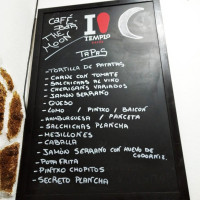 CAFÉ
BAR
THE
MOON
I
TEMPLO
TAPAS
-TORTILLA DE PATATAS
- CARNE CON TOMATE
- SALCHICHAS AL VINO
- CHERIGANS VARIADOS
- JAMÓN SERRANO
- QUESO
- LOMO / PINTXO / BAICON
- HAMBURGUESA / PANCETA
- SALCHICHAS PLANCHA
- MEJILLONES
- CABALLA
- JAMÓN SERRANO CON HUEVO DE CODORNIZ.
- POTA FRITA
- PINTXO CHOPITOS
- SECRETO PLANCHA